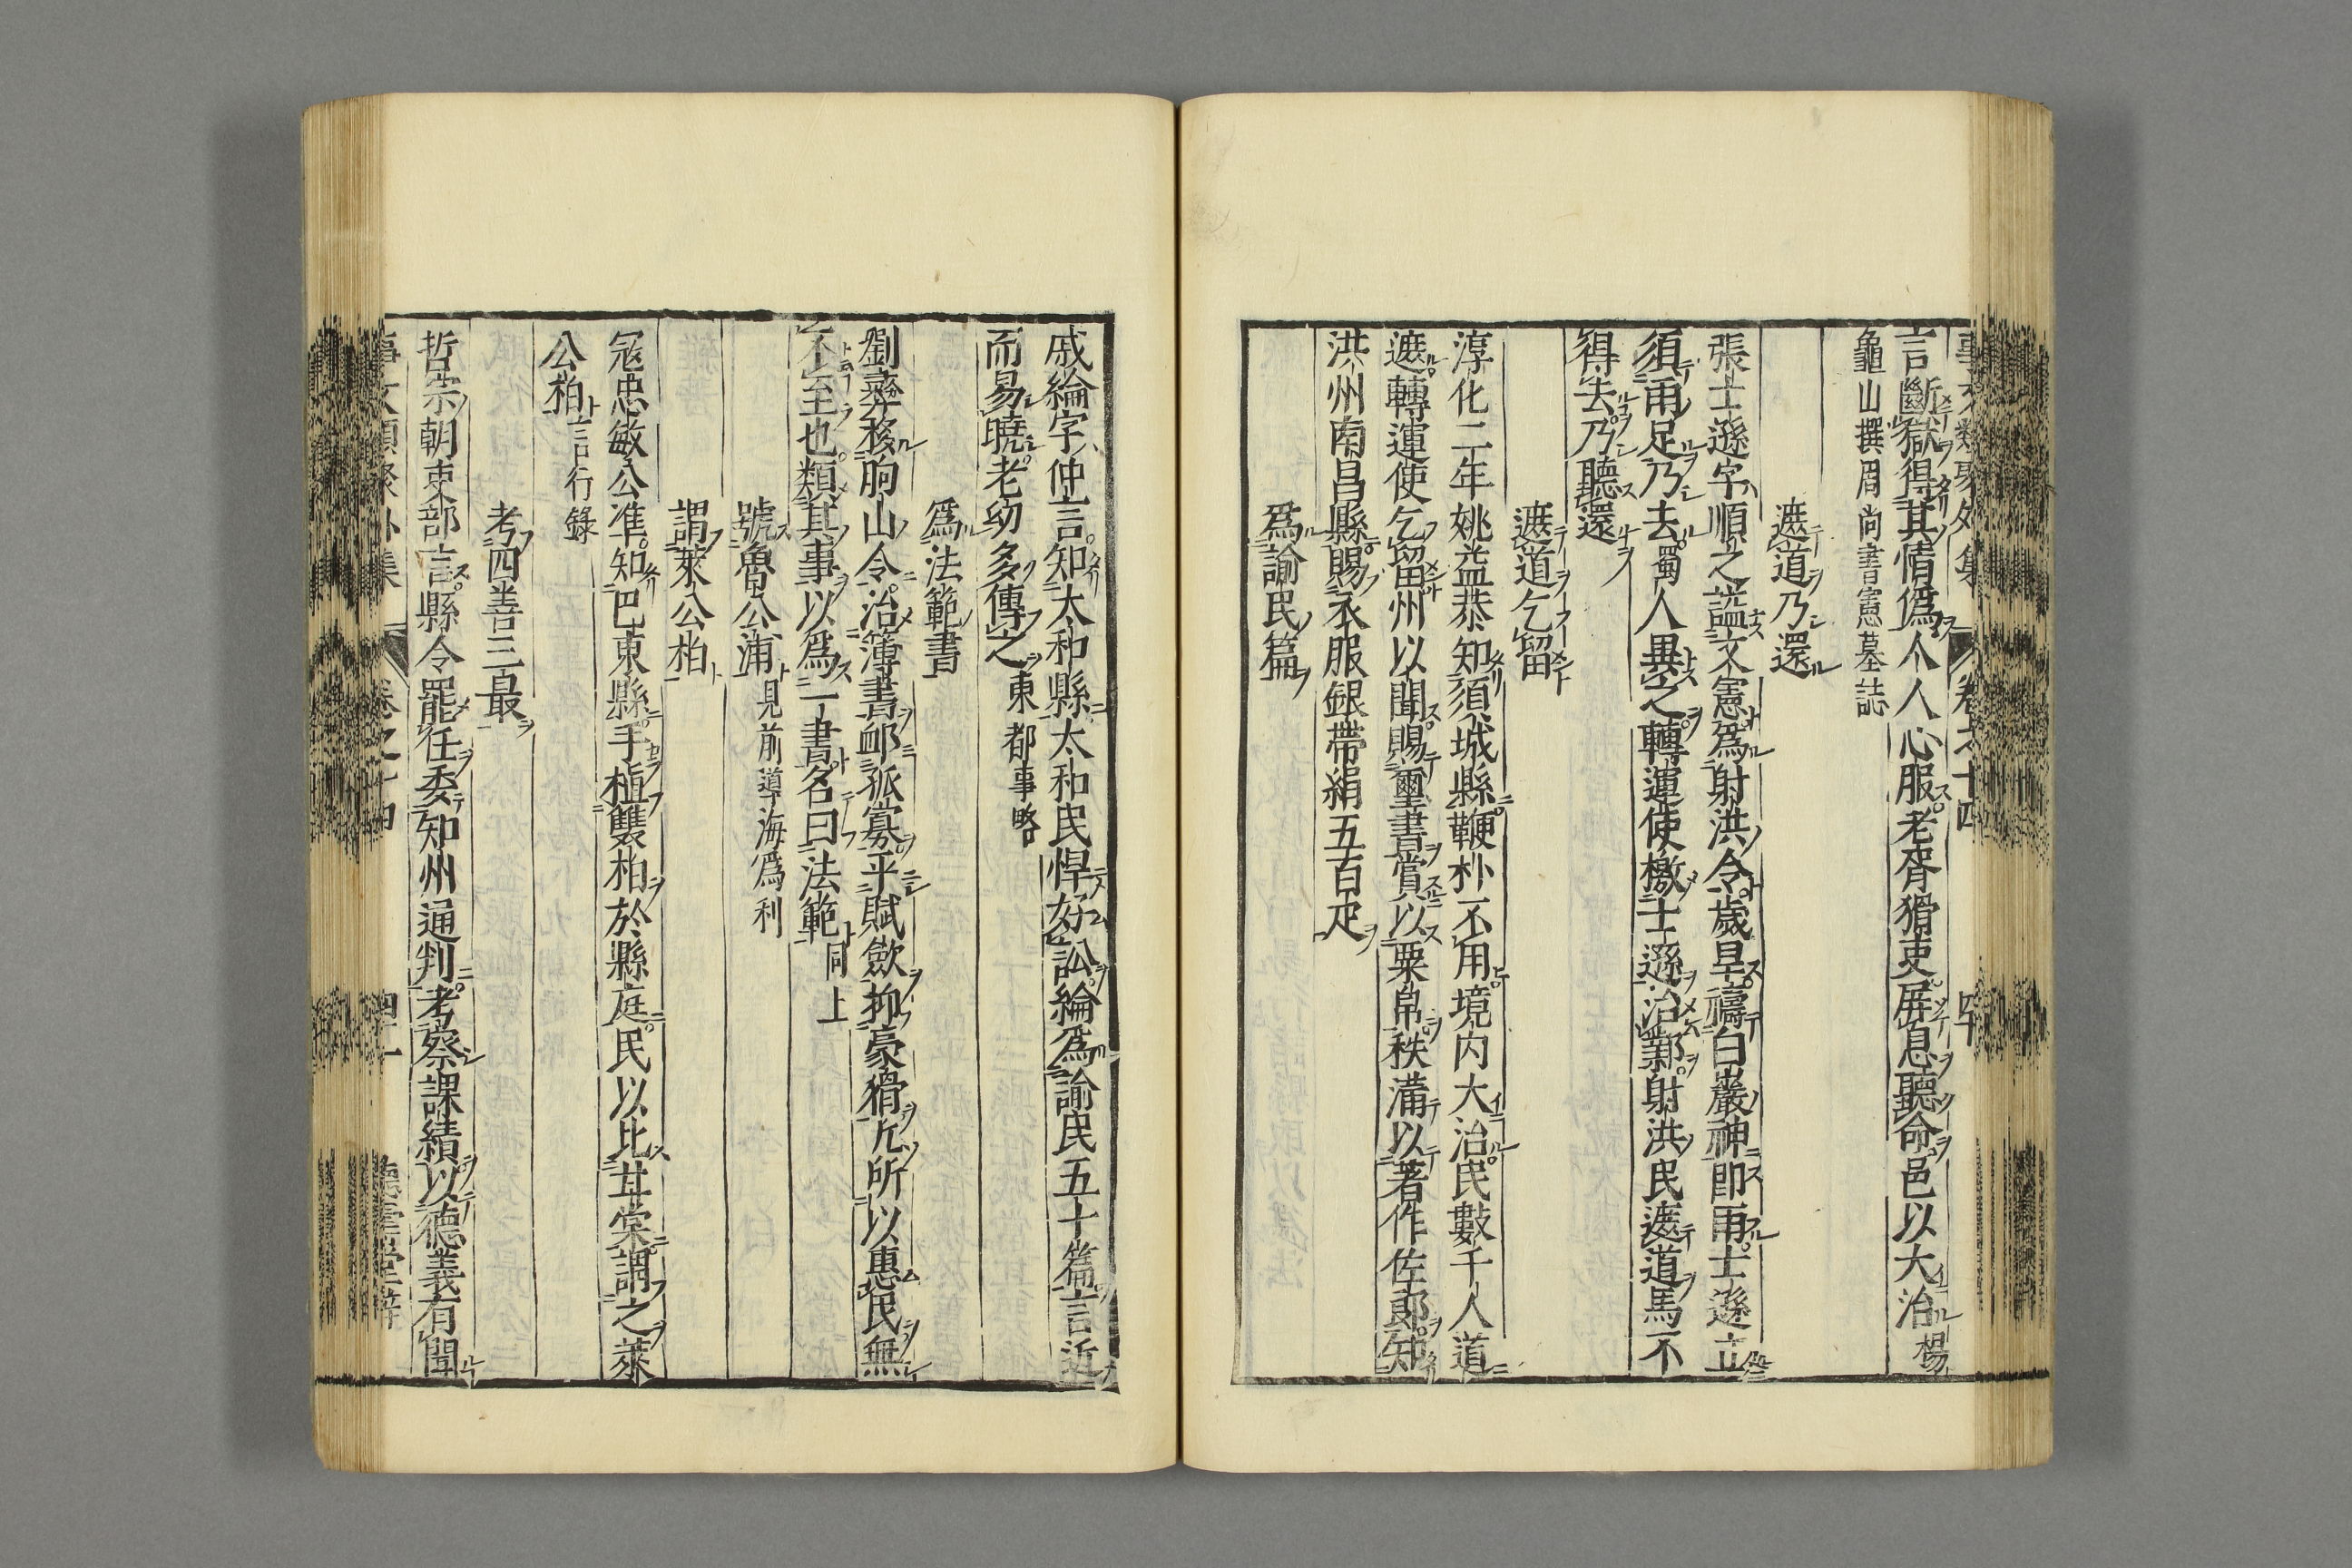 言斷獄得其情僞人人心服老胥猾吏屏息聽命邑以大治楊
龜山撰周尚書憲墓誌
遮道乃還
張士遜字順之謚文憲爲射洪令歲旱禱白巖神即雨士遜立
須雨足乃去蜀人異之轉運使檄士遜治鄭射洪民遮道馬不
得去乃聽還
遮道乞留
淳化二年姚益恭知須城縣鞭朴不用境内大治民數千人道
遮轉運使乞留州以聞賜璽書賞以粟帛秩滿以著作佐郎知
洪州南昌縣賜衣服銀帶絹五百疋
爲諭民篇
戚綸字仲言知太和縣太和民悍好訟綸爲諭民五十篇言近
而易曉老幼多傳之東都事略
爲法範書
劉彝移朐山令治簿書邮孤寡乎賦斂抑豪猾凡所以惠民無
不至也類其事以爲一書名曰法範同上
號魯公浦見前導海爲利
謂萊公柏
冦忠敏公准知巴東縣手植雙柏於縣庭民以比甘棠謂之萊
公柏言行錄
考四善三最
哲宗朝吏部言縣令罷任委知州通判考察課績以德義有聞